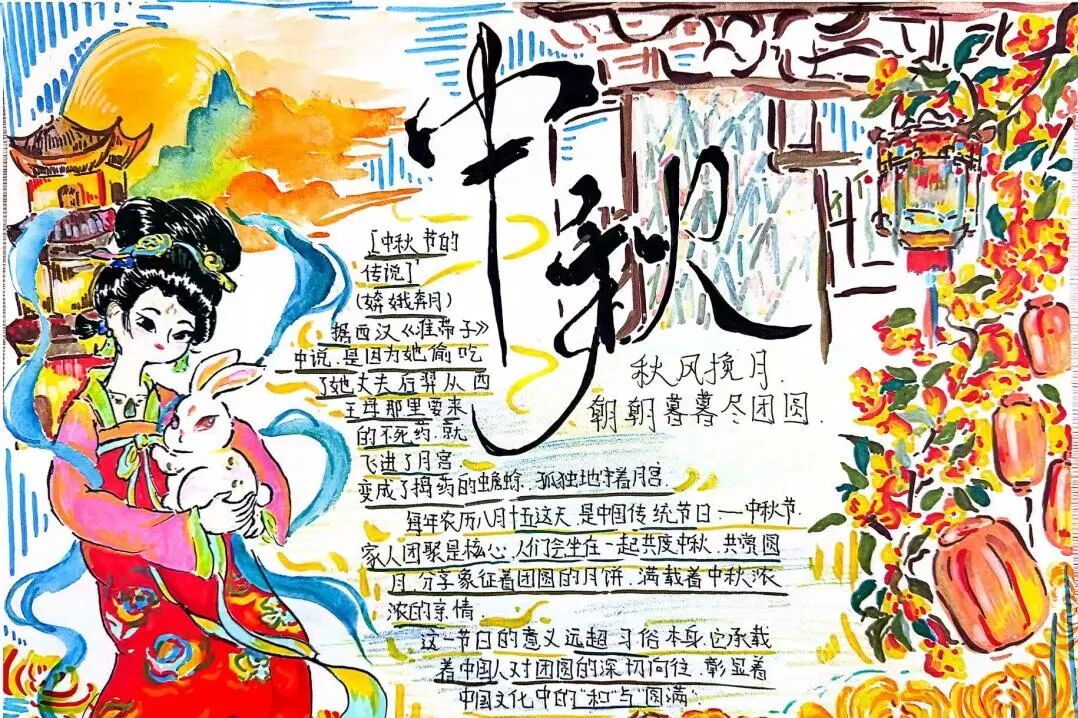 中秋
[中秋节的
传说]
(嫦娥奔月)
据西汉《淮南子》
中说,是因为她偷吃
了她丈夫后羿从西
王母那里要来
的不死药,就
飞进了月宫.
变成了捣药的蟾蜍,孤独地守着月宫.
秋风挽月.
朝朝暮暮尽团圆.
每年农历八月十五这天,是中国传统节日.——中秋节.
家人团聚是核心,人们会坐在一起共度中秋,共赏圆
月,分享象征着团圆的月饼,满载着中秋浓
浓的亲情.
这一节日的意义远超习俗本身,它承载
着中国人对团圆的深切向往,彰显着
中国文化中的"和"与"圆满".